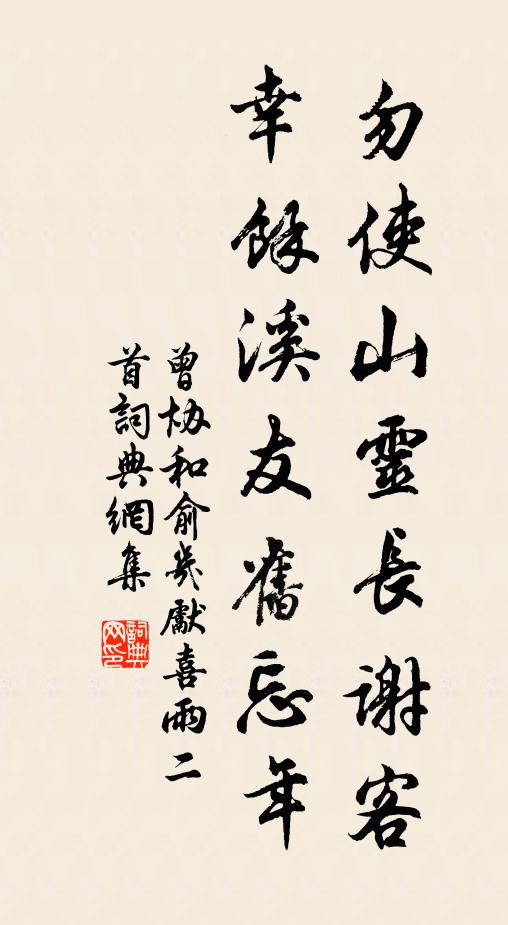 勿使山靈長謝客
幸餘溪友舊忘年
曾協和俞幾獻喜雨二
首詞典網集
詞典
网印